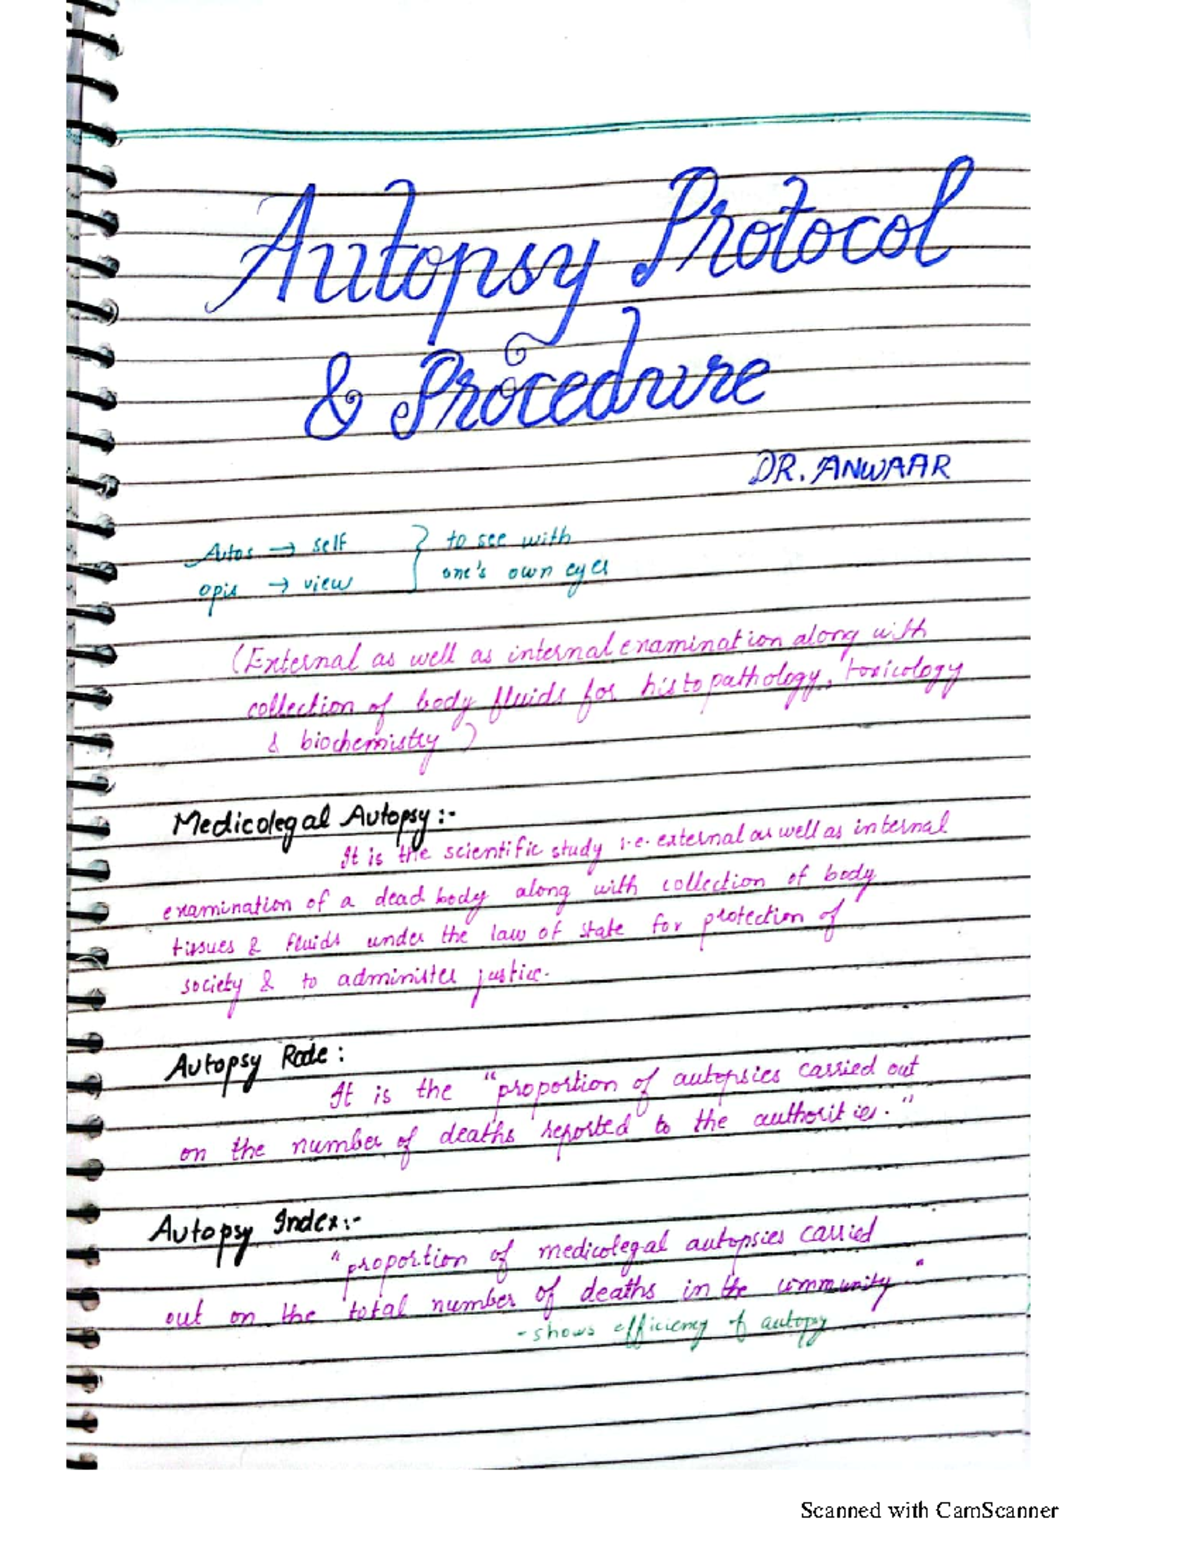 Autopsy Protocol
& Procedure
DR. ANWAAR
Autos → self } to see with
opis → view one's own eyes
(External as well as internal examination along with
collection of body fluids for histopathology, toxicology
& biochemistry)
Medicolegal Autopsy:-
It is the scientific study i.e. external as well as internal
examination of a dead body along with collection of body
tissues & fluids under the law of state for protection of
society & to administer justice.
Autopsy Rate:
It is the "proportion of autopsies carried out
on the number of deaths reported to the authorities."
Autopsy Index:-
"proportion of medicolegal autopsies carried
out on the total number of deaths in the community"
- shows efficiency of autopy
Scanned with CamScanner